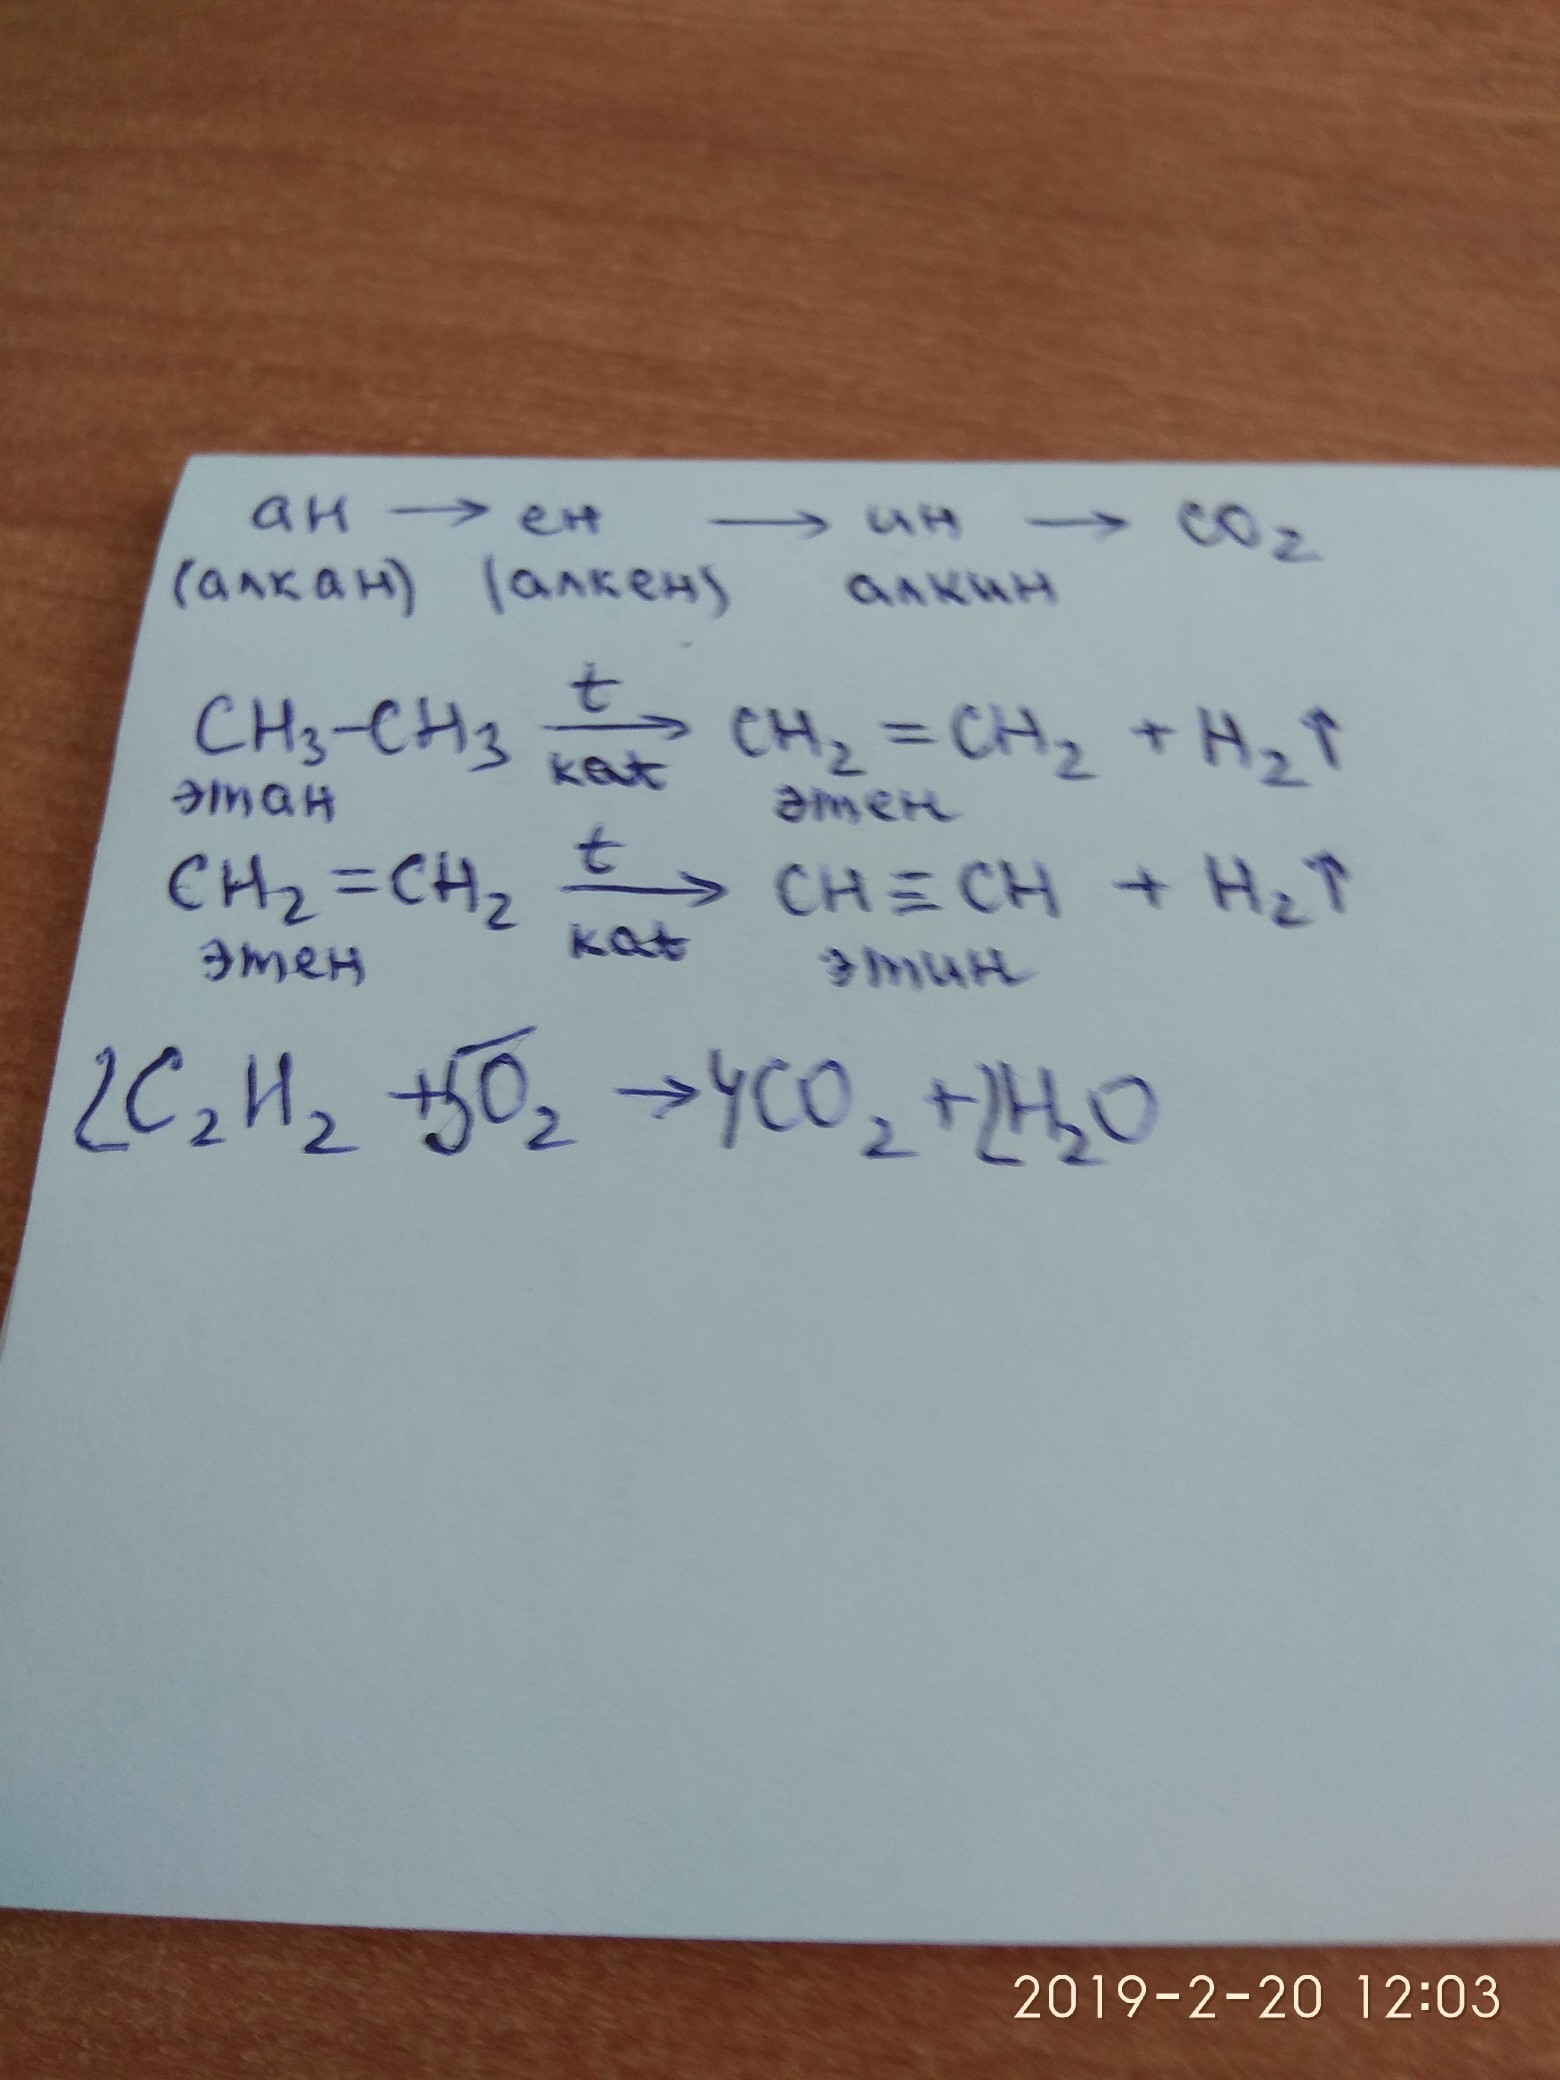 ан → ен → ин → CO₂
(алкан) (алкен) алкин
CH₃–CH₃ t→ CH₂ = CH₂ + H₂↑
кат
этан этен
CH₂ = CH₂ t→ CH ≡ CH + H₂↑
кат
этен этин
2C₂H₂ + 5O₂ → 4CO₂ + 2H₂O
2019-2-20 12:03